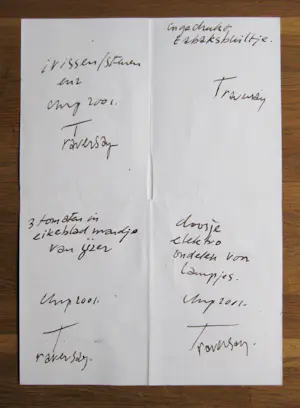 irissen/stenen
enz
Chrp 2001.
Traversay
ingedrukt
tabaksbuiltje.
Traversay
3 tomaten in
eikeblad mandje
van ijzer
Chrp 2001.
Traversay.
doosje
elektro
onderen von
lampjes.
Chrp 2001.
Traversay.